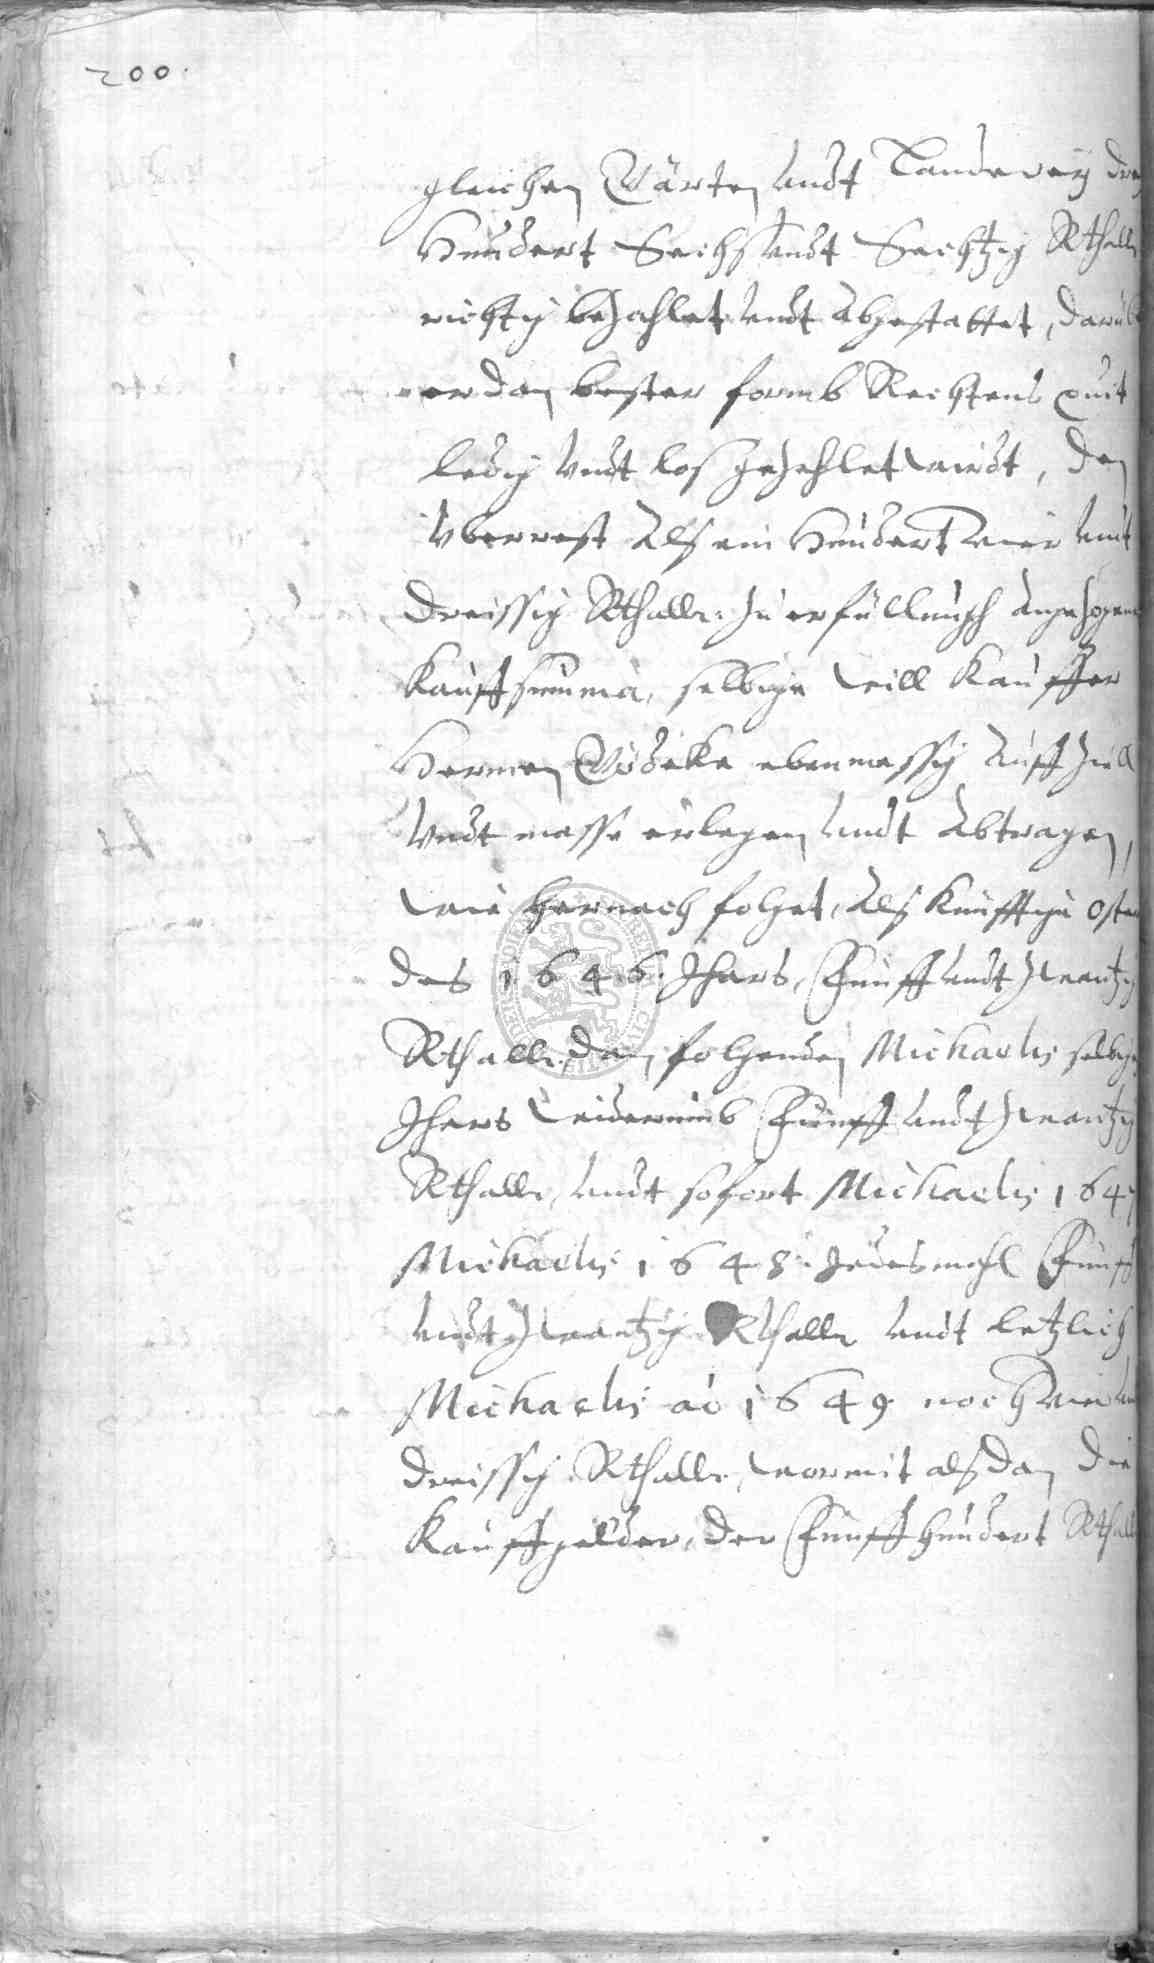 200.
gleichen Wärten undt Landewey drey
Hundert Sechs undt Sechtzig Rthall
richtig bezahlet undt Abgestattet, darüb
er dan bester formb Rechtens quit
ledig undt loß gezehlet wirdt, Den
Vberrest Alß ein Hundert vier undt
dreissig Rthaller zu erfüllungh angezogene
Kauffsumma, selbige will Kauffer
Hermen Gödeke ebenmessig auff ziell
Undt masse erlegen undt Abtragen,
wie hernach folget, Alß Künfftigü Oster
des 1646. Jhars, Fünff undt zwantzig
Rthaller, Dan folgenden Michaelis selbige
Jhars widerumb Fünff undt zwantzig
Rthaller, undt sofort Michaelis 1647
Michaelis 1648. Jedesmahl Fünff
undt zwantzig Rthaller undt letzlich
Michaelis aö 1649 noch vier un
dreissig Rthaller, wormit alßdan die
Kauffgelder, der Fünffhundert Rthall